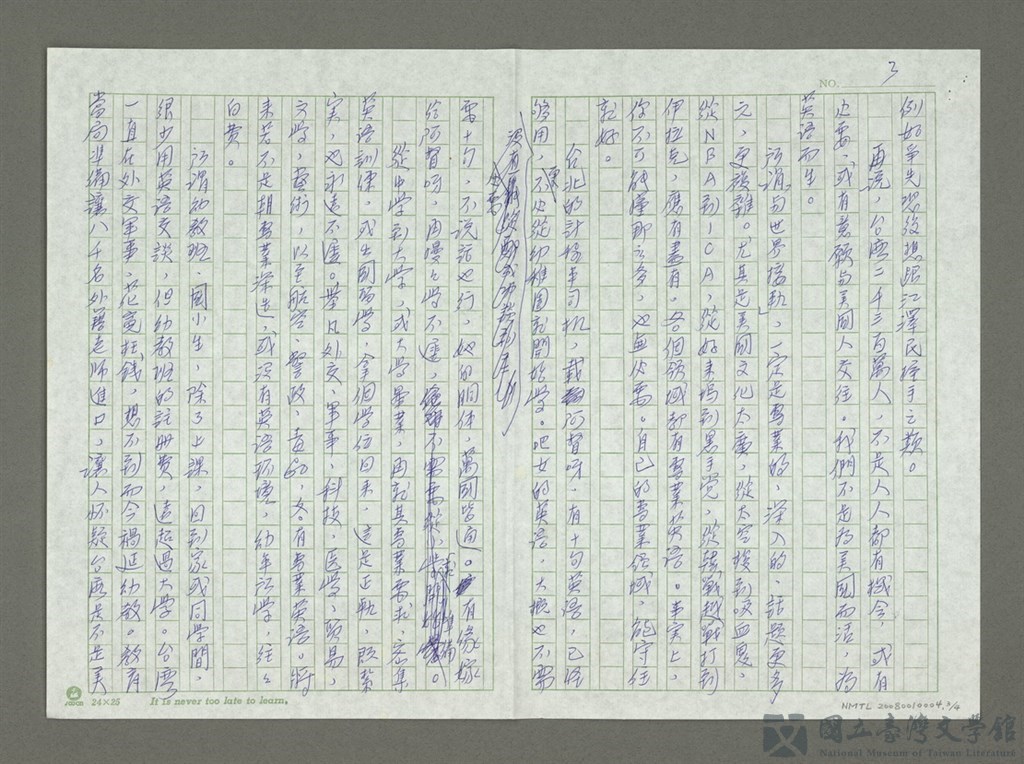 NO. 3
例如爭先恐後想跟江澤民握手之類。
再說，台灣二千三百萬人，不是人人都有機會，或有
必要，或有意願與美國人交往。我們不是為美國而活，為
英語而生。
所謂「與世界接軌」，一定是專業的、深入的，話題更多
元，更複雜。尤其是美國文化太廣，從太空梭到吸血鬼，
從NBA到CIA，從好來塢到黑手党，從韓戰越戰打到
伊拉克，應有盡有。各個領域都有專業英語。事實上，
你不可能懂那么多，也無此需。自己的專業領域，能守住
就好。
台北的計程車司机，載阿督呀，有十句英語，已經
夠用，不必從幼稚園就開始學。吧女的英語，大概也不需
要
沒有
需十句，不說話也行，她的胴体，萬國皆通。有緣嫁
給阿督呀，再慢慢學不遲，不需
準備。
從中學到大學，或大學畢業，再就其專業需求，密集
英語訓練，或出國留學，拿個學位回來，這是正軌，既紮
實，也永遠不遲。舉凡外交、軍事、科技、醫學、貿易、
文學、藝術，以至航空、警政、各有專業英語。將
來若不是朝專業深造，或沒有英語環境，幼年所學，往往
白費。
所謂幼教班、國小生，除了上課，回到家或同學間，
很少用英語交談，但幼教班的註冊費，遠超過大學。台灣
一直在外交軍事，花寃枉錢，想不到而今禍延幼教。教育
當局準備讓八千名外籍老師進口，讓人怀疑台灣是不是美
24×25
It is never too late to learn.
NMTL 20080010004.3/4
國立臺灣文學館
National Museum of Taiwan Literature